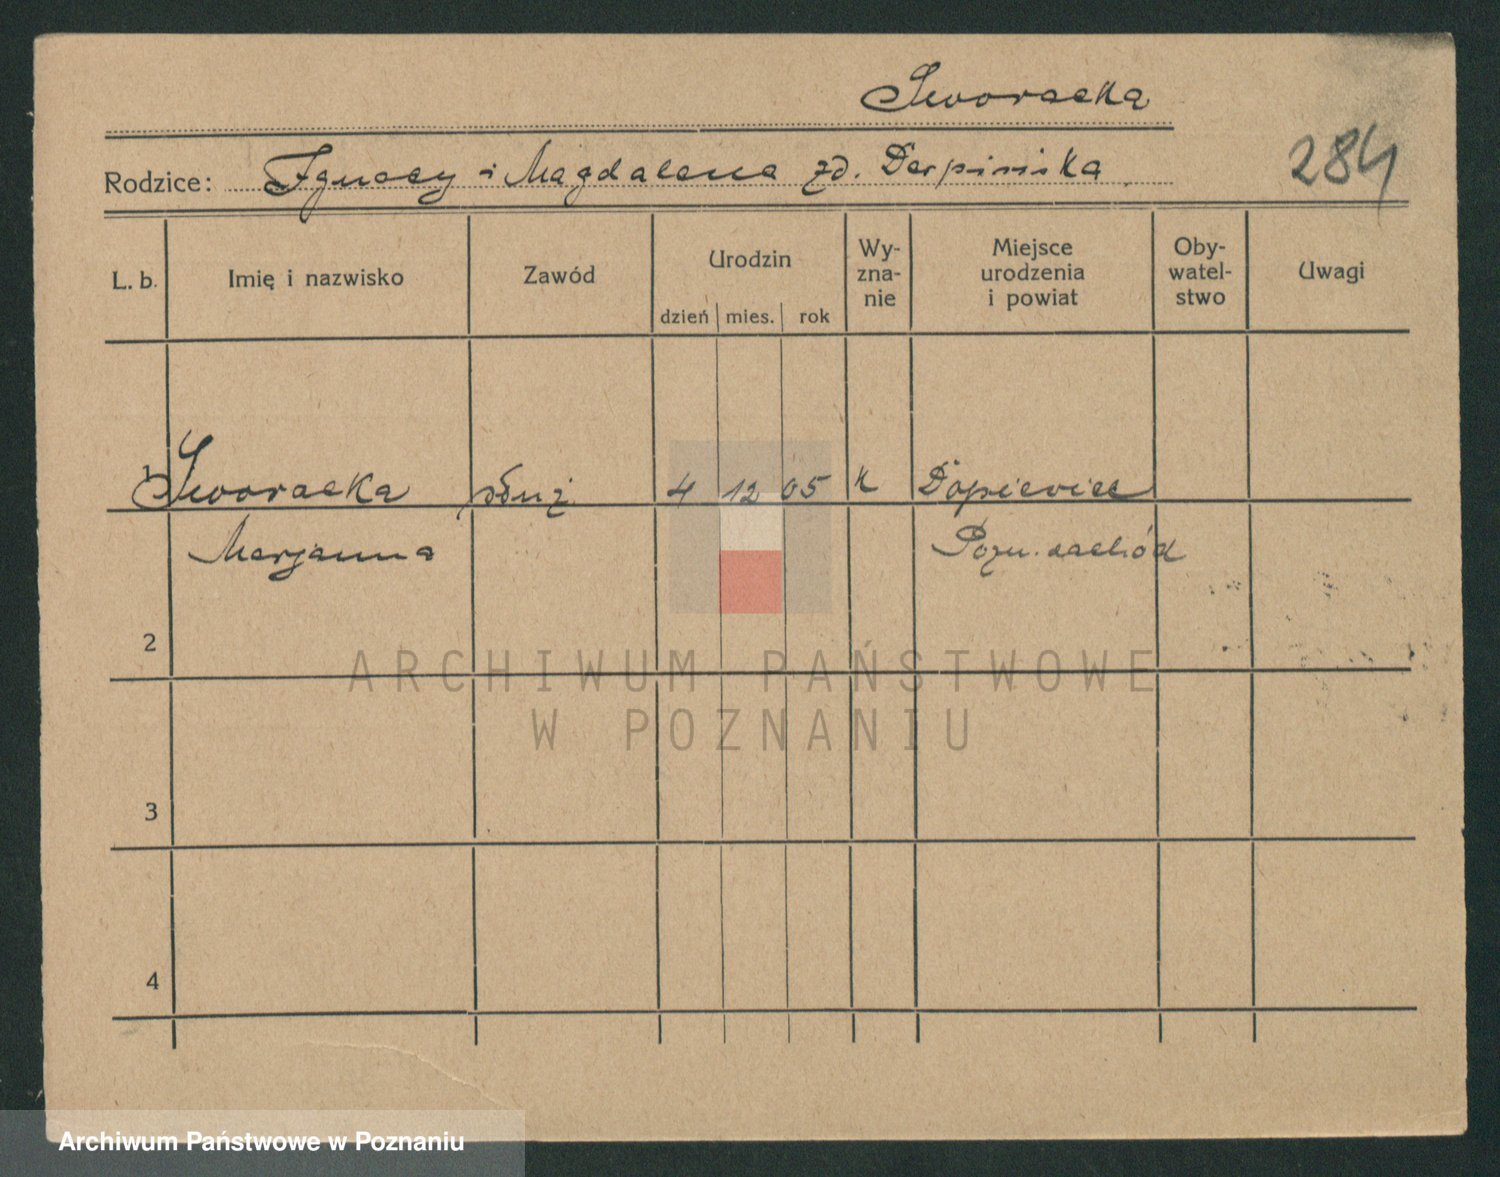 Sworacka
Rodzice: Ignacy i Magdalena zd. Derpińska
284
L. b. Imię i nazwisko Zawód Urodzin dzień mies. rok Wy-zna-nie Miejsce urodzenia i powiat Oby-watel-stwo Uwagi
1 Sworacka służ. 4 12 05 k Dopiewiec
Marjanna Pozn. zachód
2
ARCHIWUM PAŃSTWOWE
W POZNANIU
3
4
Archiwum Państwowe w Poznaniu